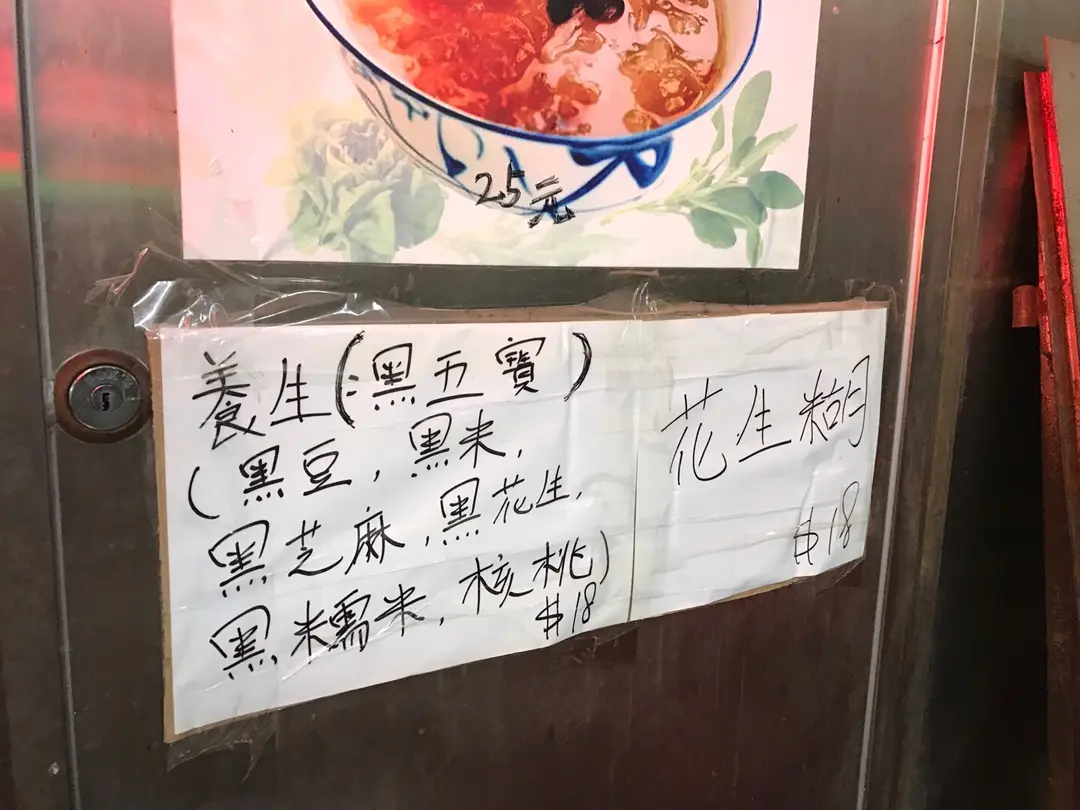 25元
養生(黑五寶)
(黑豆,黑米,
黑芝麻,黑花生,
黑糯米,核桃)
$18
花生糊
$18